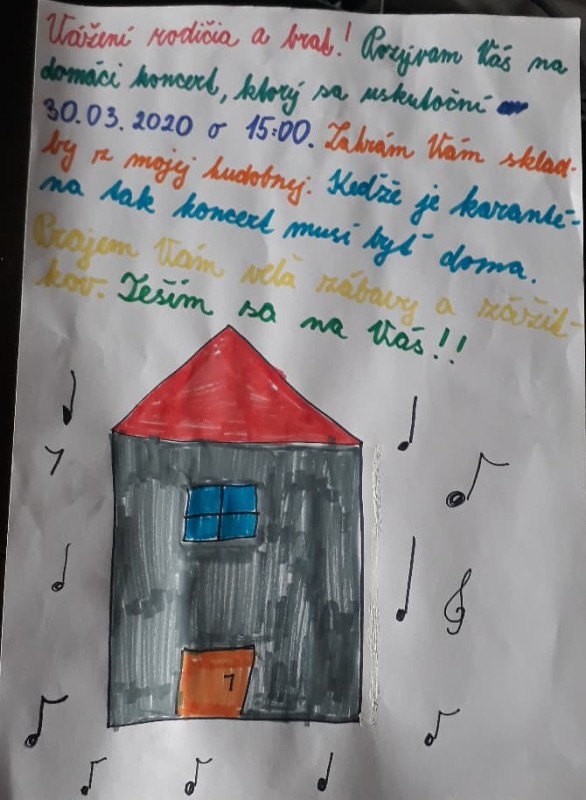 Vážení rodičia a brat! Pozývam Vás na
domáci koncert, ktorý sa uskutoční
30.03.2020 o 15:00. Zahrám Vám sklad-
by z mojej hudobnej. Kedže je karanté-
na tak koncert musí byť doma.
Prajem Vám velä zábavy a zážit-
kov. Teším sa na Vás!!